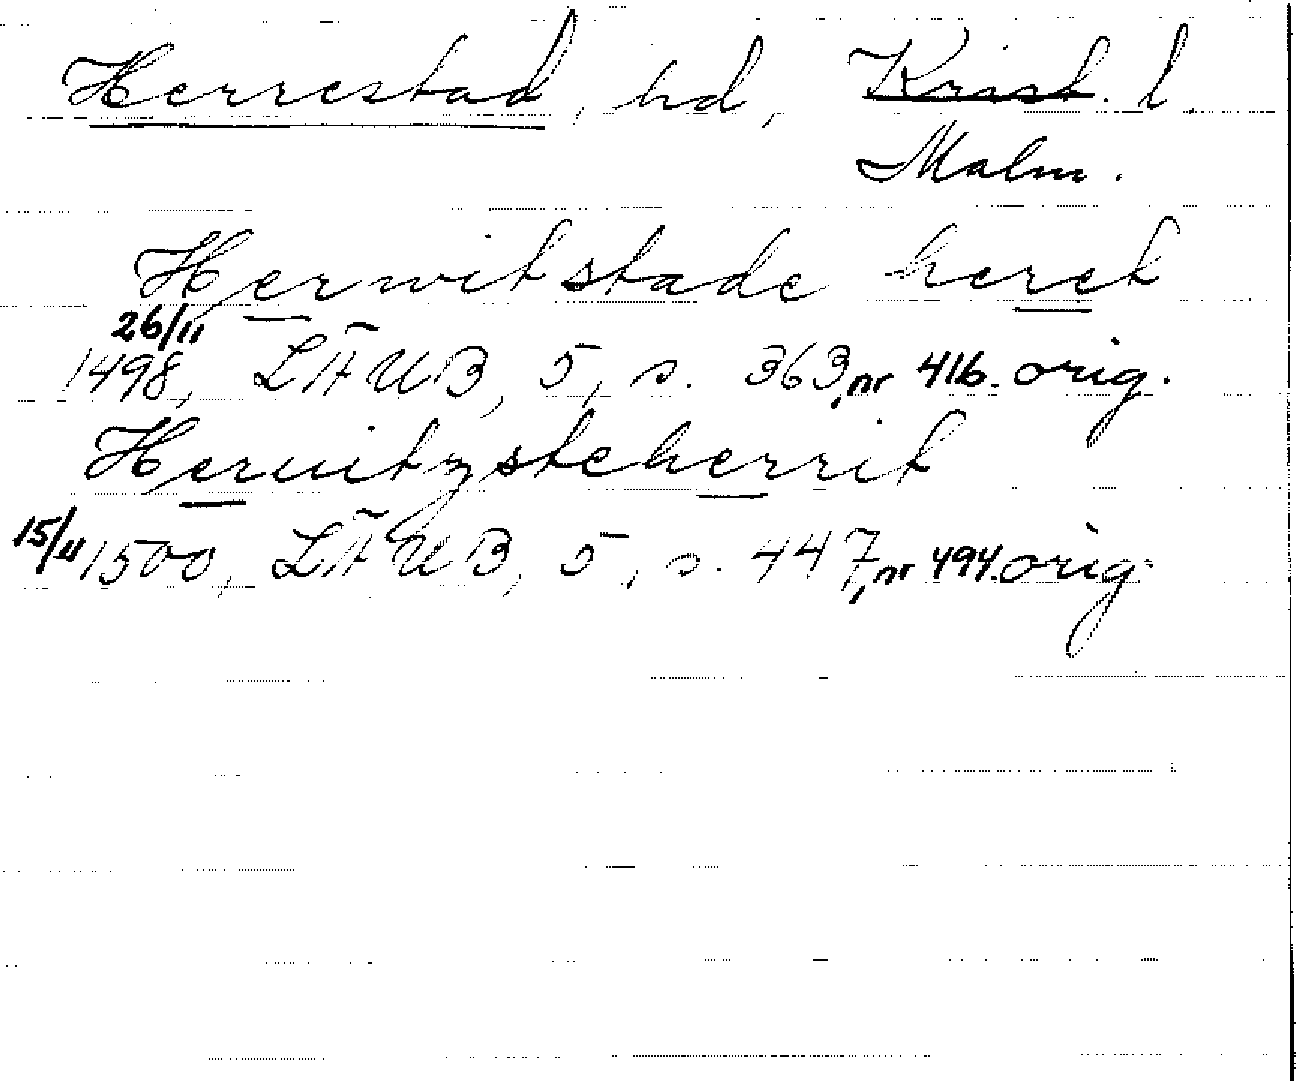 Herrestad, hd, Krist. l.
Malm.
Herwitstade heret
26/11
1498, LÄUB, 5, s. 363, nr 416. orig.
Heruitzsteherrit
15/11 1500, LÄUB, 5, s. 447, nr 494. orig.